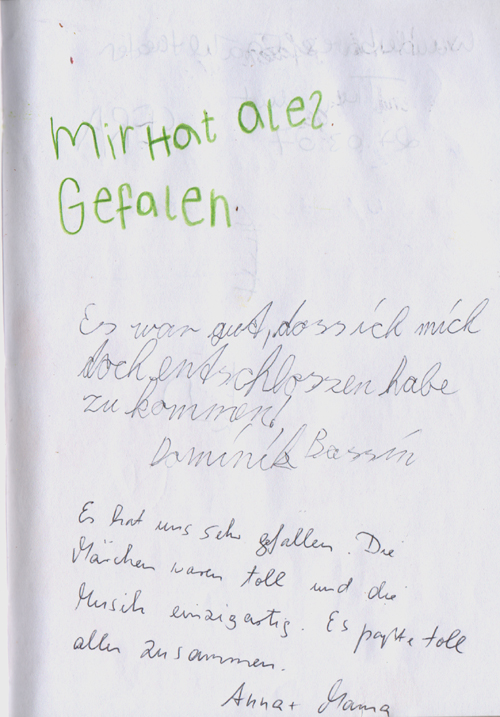 Mir Hat ales
Gefalen.
Es war gut, dass ich mich
doch entschlossen habe
zu kommen!
Dominik Bassin
Es hat uns sehr gefallen. Die
Märchen waren toll und die
Musik einzigartig. Es paßte toll
alles zusammen.
Anna + Mama